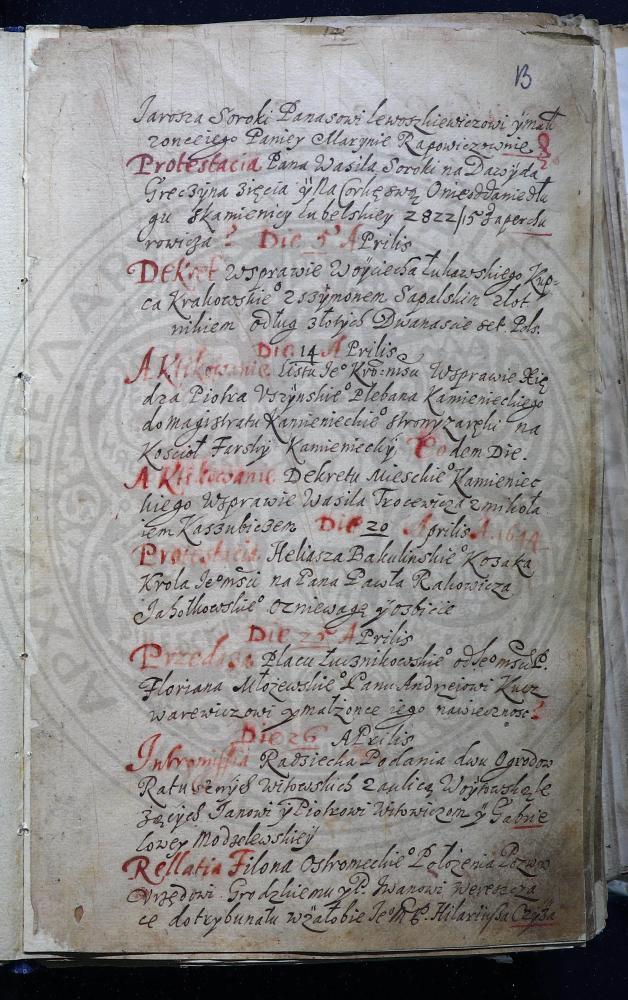 13
Jarosza Soroki Panasowi Lewoszkiewiczowi ÿ małt
zonce iego Paniey Marynie Rapowiczownie
Protestacia Pana Wasila Soroki na Dawÿda
Greczÿna zięcia ÿ Na Corkę swą O nieoddanie dłu
gu s kamienicy lubelskiey z 822/15
rowicza Die 5 APrilis
Dekret w sprawie Woÿciecha Łukawskiego Kup-
ca Krakowskieo z Szÿmonem Sapalskim złot
nikiem o dług złotych Dwanascie set. Pols.
Die 14 APrilis
AKtikowanie Listu Jeo Kro: mśći W sprawie Xię
dza Piotra Vszynskieo Plebana Kamienieckiego
do Magistratu Kamienieckieo strony zaręki na
Koscioł Farsky Kamieniecky Eodem Die.
AKtikowanie Dekretu Mieschieo Kamieniec
kiego W sprawie Wasila Trocewicza z mikoła
iem Kaszubiczem Die 20 Aprilis A. 1644
Protestacia Heliasza Bakulinskieo Kozaka
Krola Jeomśći na Pana Pawła Rakowicza
Jahołkowskieo o zniewagę ÿ o zbicie
Die 25 APrilis
Przedaża Placu Łucznikowskieo od Jeomśći P.
Floriana Młożewskieo Panu Andrzeiowi Kucz
warewiczowi ÿ małżonce iego na wiecznosc
Die 26 APrilis
Intromissia Radziecka Podania dwu Ogrodow
Ratusznÿch witowskich za ulicą Woÿtowską le
żącÿch Janowi ÿ Piotrowi Witowiczom ÿ Gabrie
lowey Modzelewskieÿ
Rellatia Filona Ostromeckieo Położenia Pozwu
Vrzędowi Grodzkiemu ÿ P. Iwanowi Wereszcza
ce do trybunału w żałobie Jeo M P. Hilariusa Czyża